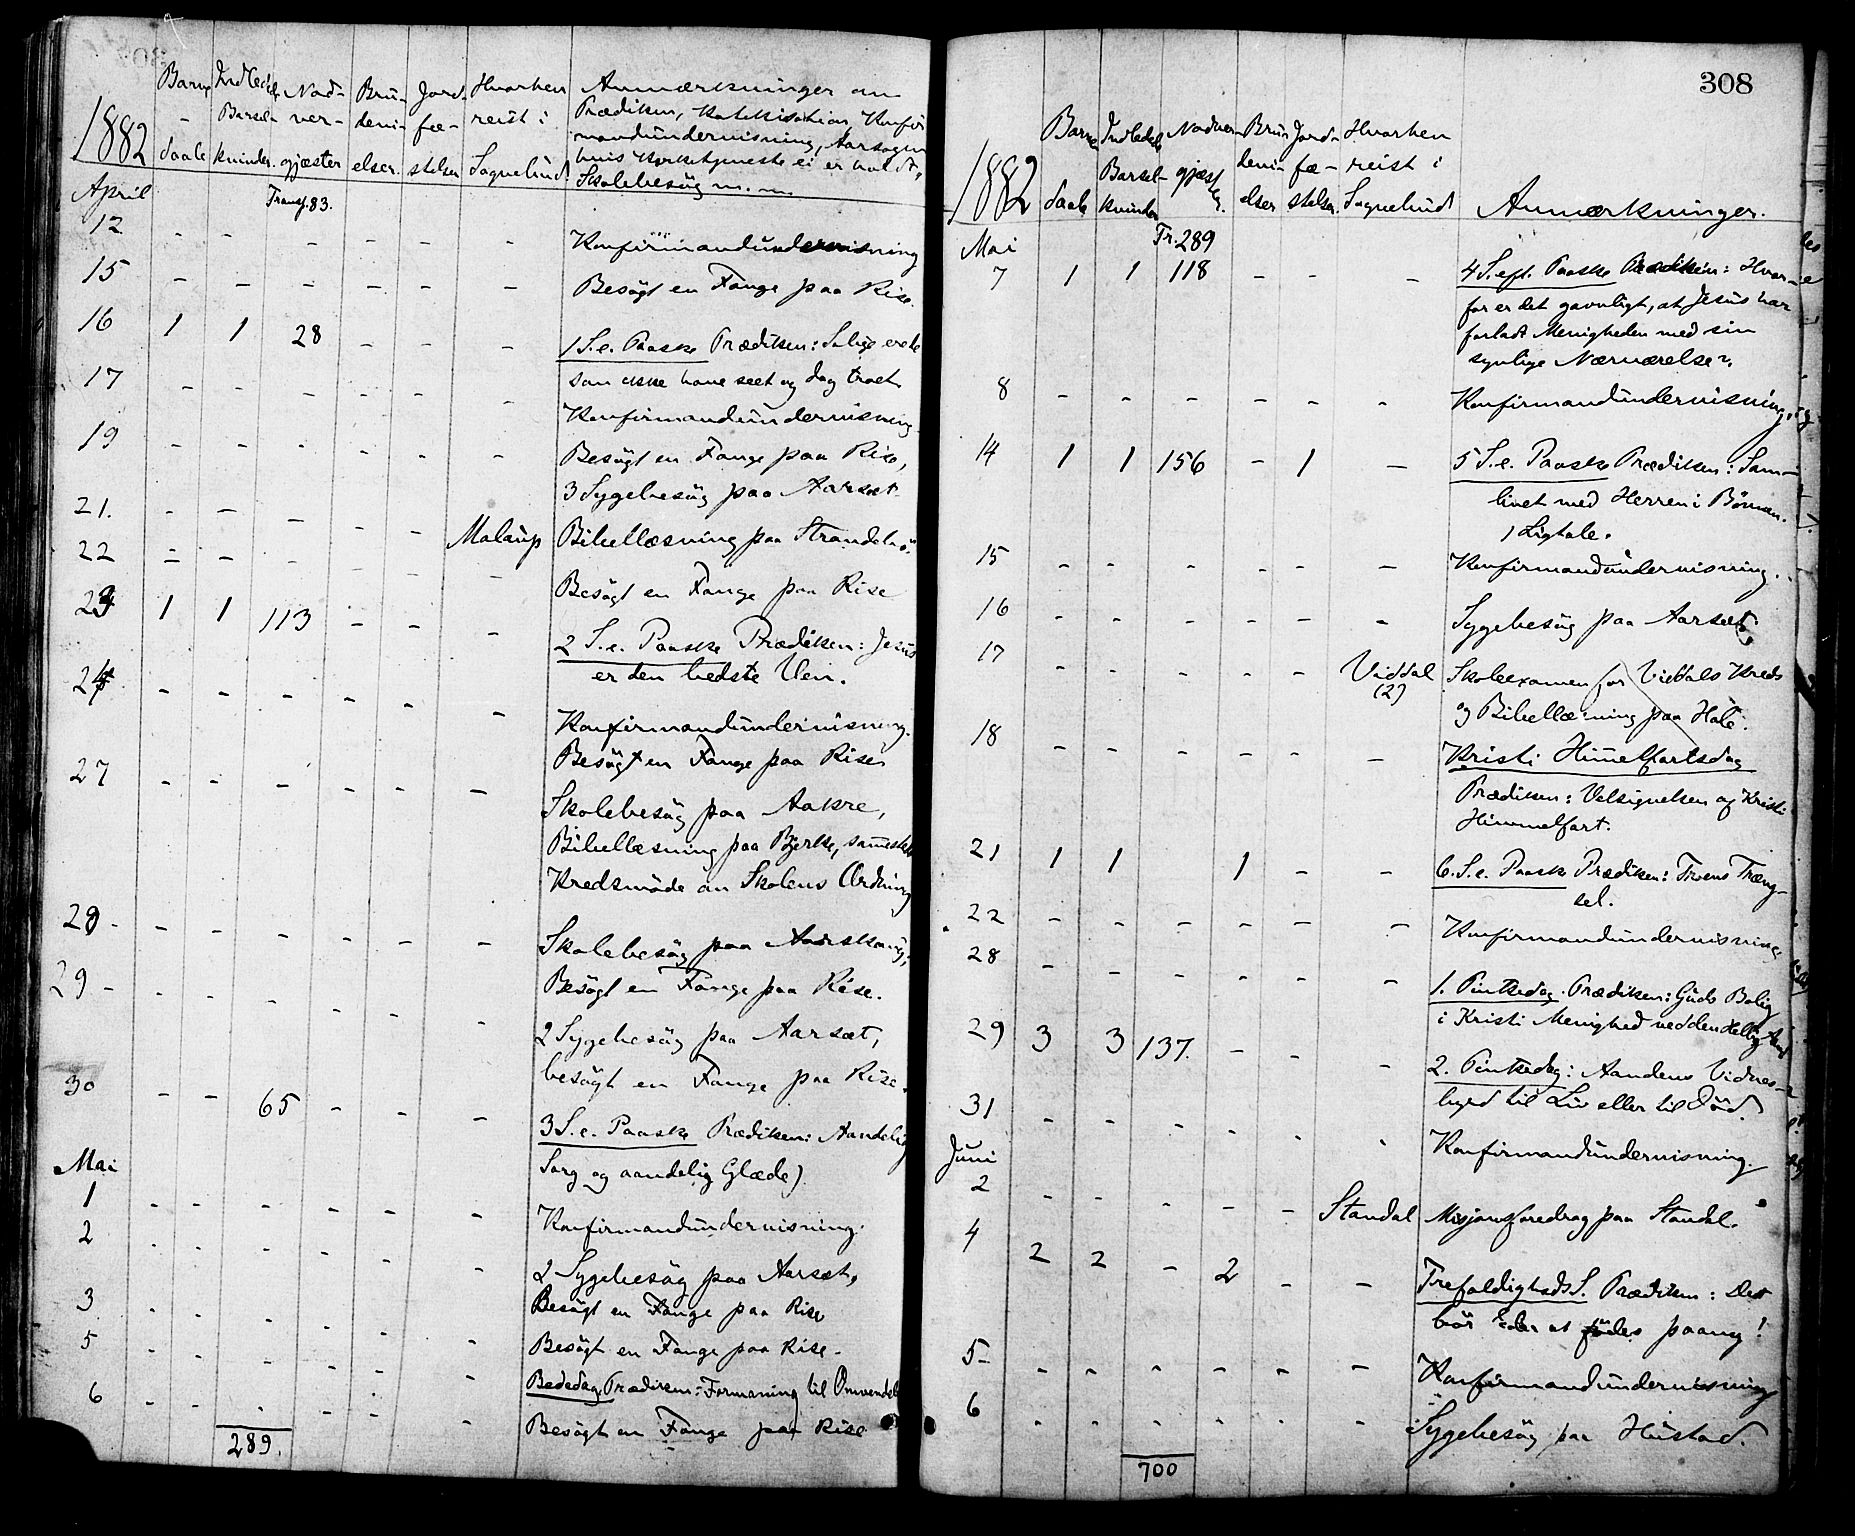 1882
Barne-daab
Indledede Barsel-kvinder.
Nad-ver-gjæster
Bru-devi-elser.
Jord-fæ-stelser
Hvorhen reist i Sognebud
Anmærkninger om
Prædiken, Katekisation, Konfir-
mandundervisning, Aarsagen
hvis Kirketjeneste ei er holdt,
Skolebesøg m. m.
April Transp. 83.
12 - - - - - - Konfirmandundervisning
15 - - - - - - Besøgt en Fange paa Rise.
16 1 1 28 - - - 1 S. e. Paaske Prædiken: Salige ere de
som ikke have seet og dog troet.
17 - - - - - - Konfirmandundervisning.
19 - - - - - - Besøgt en Fange paa Rise,
3 Sygebesøg paa Aarsæt.
21. - - - - - Molaup Bibellæsning paa
22 - - - - - - Besøgt en Fange paa Rise
23 1 1 113 - - - 2 S. e. Paaske Prædiken: Jesus
er den bedste Ven.
24 - - - - - - Konfirmandundervisning.
Besøgt en Fange paa Rise
27 - - - - - - Skolebesøg paa Aakre,
Bibellæsning paa Bjerke, sammesteds
Kredsmøde om Skolens Ordning
28 - - - - - - Skolebesøg paa
Besøgt en Fange paa Rise.
29 - - - - - - 2 Sygebesøg paa Aarsæt,
besøgt en Fange paa Rise.
30 - - 65 - - - 3 S. e. Paaske Prædiken: Aandelig
Sorg og aandelig Glæde).
Mai
1 - - - - - - Konfirmandundervisning.
2 - - - - - - 2 Sygebesøg paa Aarsæt,
Besøgt en Fange paa Rise
3 - - - - - - Besøgt en Fange paa Rise.
5 - - - - - - Bededag. Prædiken: Formaning til Omvendelse
6 - - - - - - Besøgt en Fange paa Rise
289.
308
1882
Barne daab
Indledede Barsel-kvinder
Nadver-gjæster.
Bru-devi-elser
Jord-fæ-stelser.
Hvorhen reist i Sognebud
Anmærkninger.
Mai Tr. 289
7 1 1 118 - - - 4 S. eft. Paaske Prædiken: Hvor-
for er det gavnligt, at Jesus har
forladt Menigheden med sin
synlige Nærværelse?
8 - - - - - - Konfirmandundervisning.
14 1 1 156 - 1 - 5 S. e. Paaske Prædiken: Sam-
livet med Herren i Bønnen.
1 Ligtale.
15 - - - - - - Konfirmandundervisning.
16 - - - - - - Sygebesøg paa Aarsæt,
17 - - - - - Viddal (2) Skoleexamen for Viddals Kreds
og Bibellæsning paa Hole.
18 - - - - - - Kristi Himmelfartsdag
Prædiken: Velsignelsen af Kristi
Himmelfart.
21 1 1 1 - - 6. S. e. Paaske Prædiken: Troens Træng-
sel.
22 - - - - - - Konfirmandundervisning
28 - - - - - - 1. Pintsedag. Prædiken: Guds Bolig
i Kristi Menighed ved den Hellig Aand
29 3 3 137. - - - 2. Pintsedag: Aandens Vidnes-
byrd til Liv eller til Død.
31 - - - - - - Konfirmandundervisning.
Juni
2 - - - - - Standal Misjonsforedrag paa Standal.
4 2 2 - 2 - - Trefoldigheds S. Prædiken: Det
bør Eder at fødes paany!
5 - - - - - - Konfirmandundervisning
6 - - - - - - Sygebesøg paa Hustad.
700